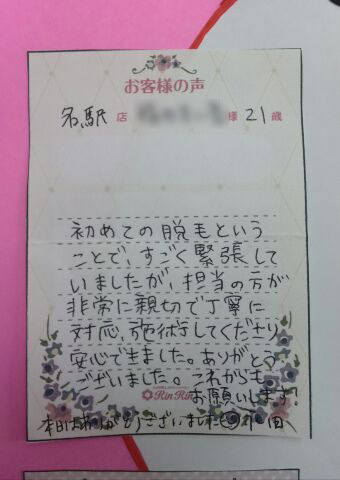 お客様の声
名駅 店 様 21 歳
初めての脱毛という
ことで、すごく緊張して
いましたが、担当の方が
非常に親切で丁寧に
対応、施術してくださり
安心できました。ありがとう
ございました。これからも
お願いします!
Rin Rin
本日はありがとうございました